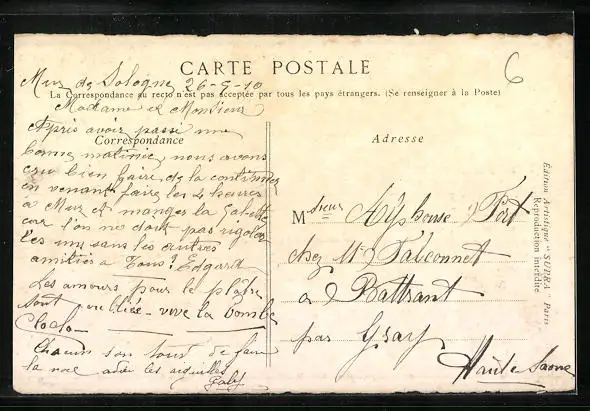 CARTE POSTALE
6
Mur de Sologne 26-9-10
La Correspondance au recto n'est pas acceptée par tous les pays étrangers. (Se renseigner à la Poste)
Madame et Monsieur
Correspondance
Après avoir passé une
bonne matinée, nous avons
cru bien faire de la continuer
en venant faire les 4 heures
à Mur et manger la galette
car l'on ne doit pas rigoler
les uns sans les autres
amitiés à Tous! Edgard
Les amours pour le plâtre
sont oubliés - vive la bombe
Cloclo
Chacun son tour de faire
la noce les aiguilles
Gaby
Adresse
Msieur Alphonse Fort
chez Mr Falconnet
à Battrant
par Gray
Haute Saone
Edition Artistique "SUPRA" Paris
Reproduction interdite